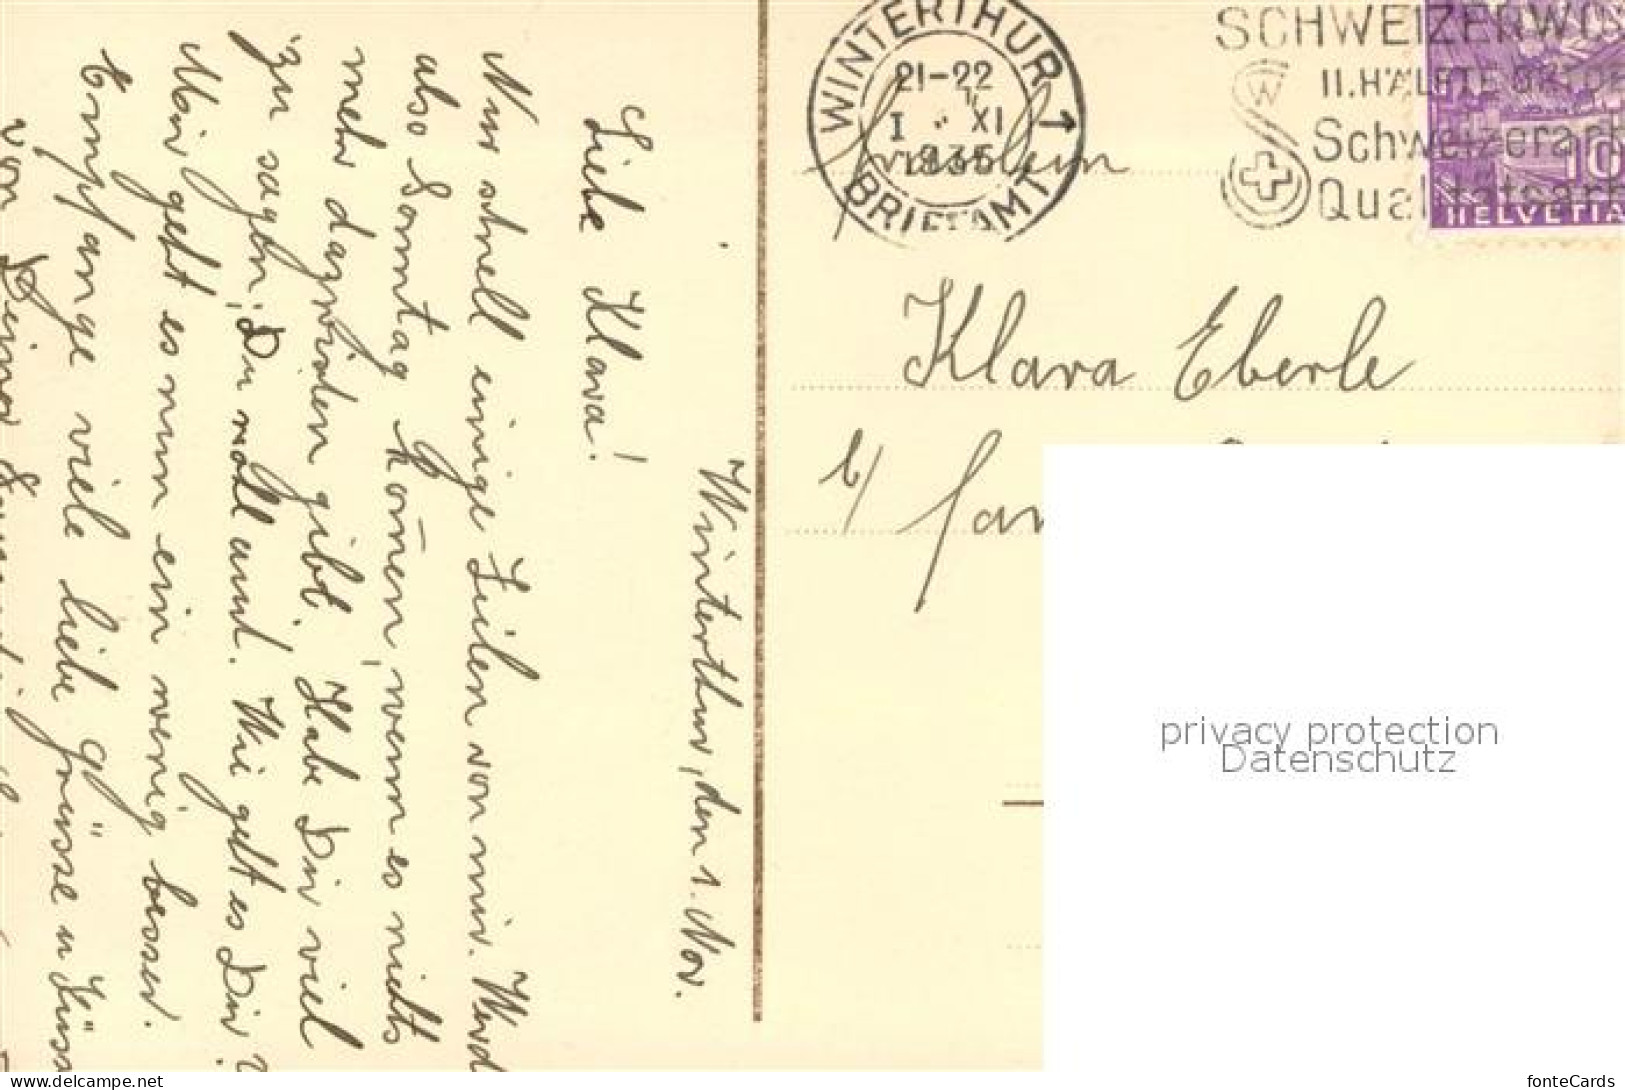 Winterthur, den 1. Nov.
Liebe Klara!
Nur schnell einige Zeilen von mir. Werd
also Sonntag kom̄en, wenn es nichts
mehr dazwischen gibt. Habe Dir viel
zu sagen, Du wohl auch. Wie geht es Dir?
Mir geht es nun ein wenig besser.
Empfange viele liebe Grüsse u Küsse
von Deiner
WINTERTHUR 1
21-22
I XI
1935
BRIEFAMT
SCHWEIZERWO
II. HÄLFTE OKTOB
Schweizerarb
Qualitätsarb
10
HELVETIA
Fräulein
Klara Eberle
b/ Fam
privacy protection
Datenschutz
www.delcampe.net
fonteCards